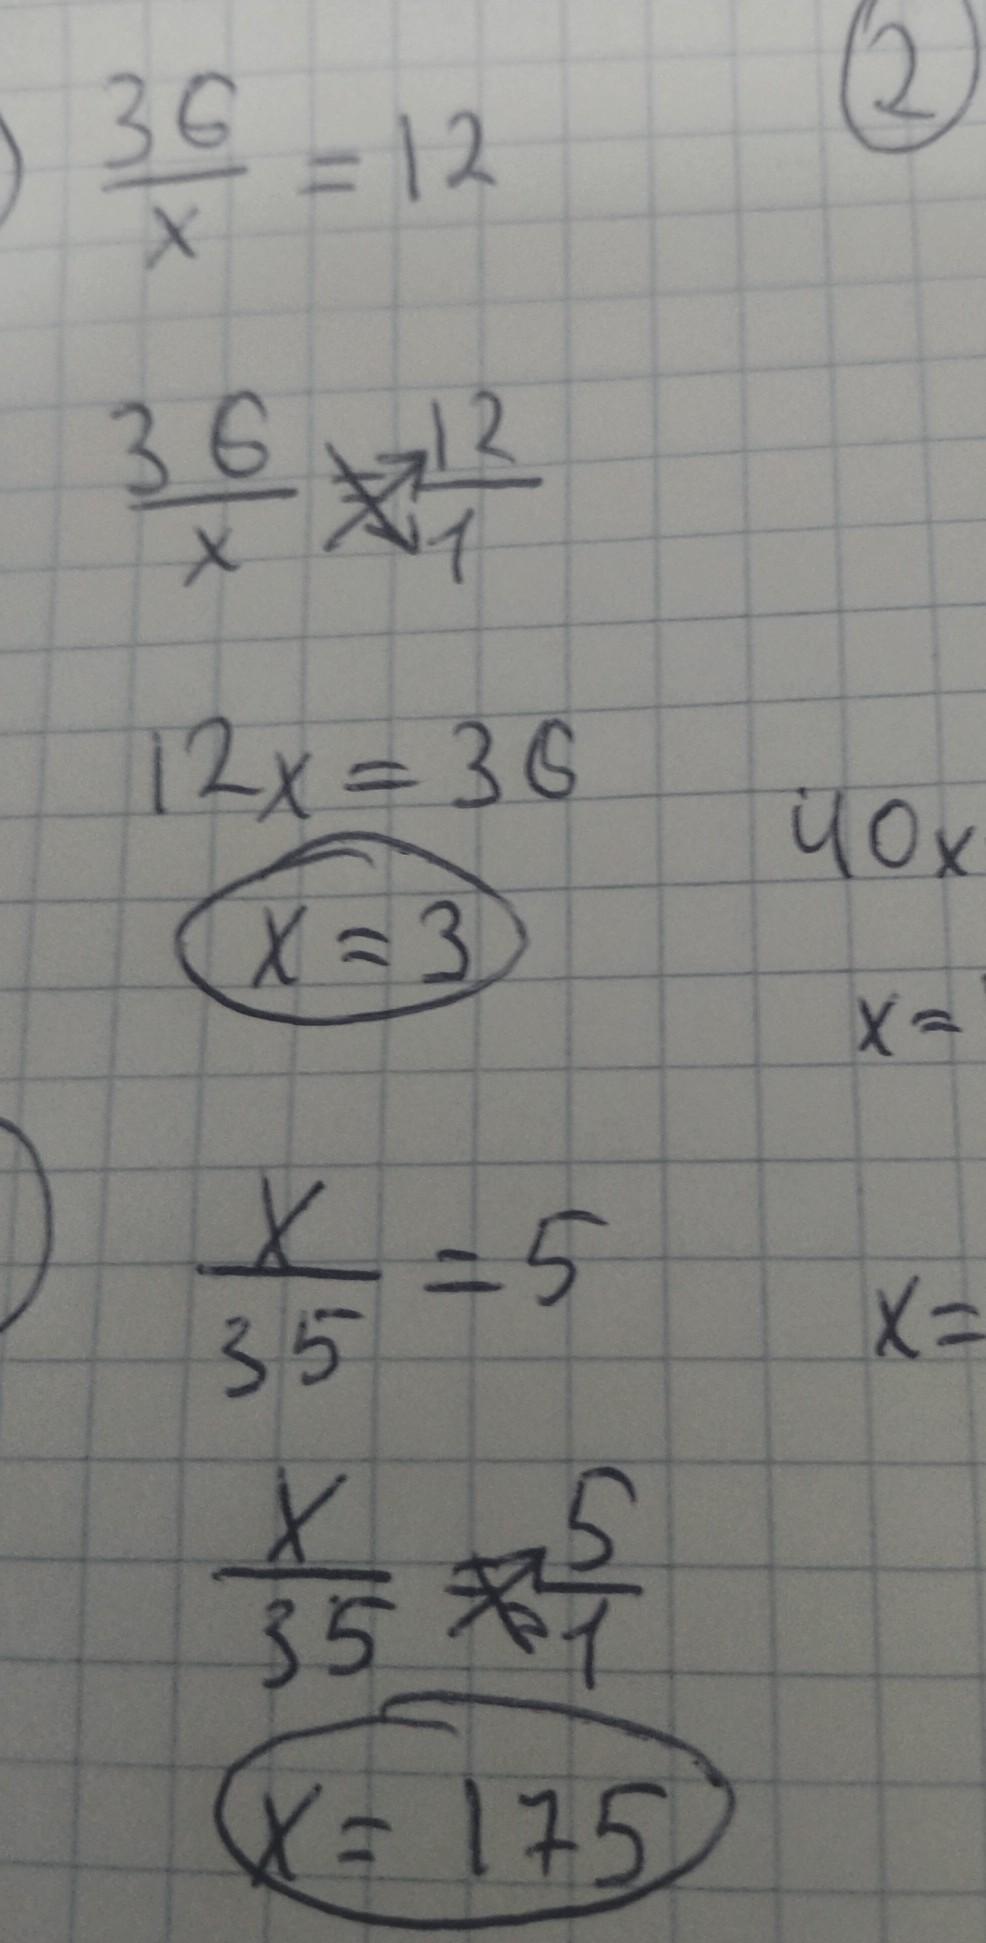 2
36/x = 12
36/x = 12/1
12x = 36
40x
x = 3
x =
x/35 = 5
x =
x/35 = 5/1
x = 175